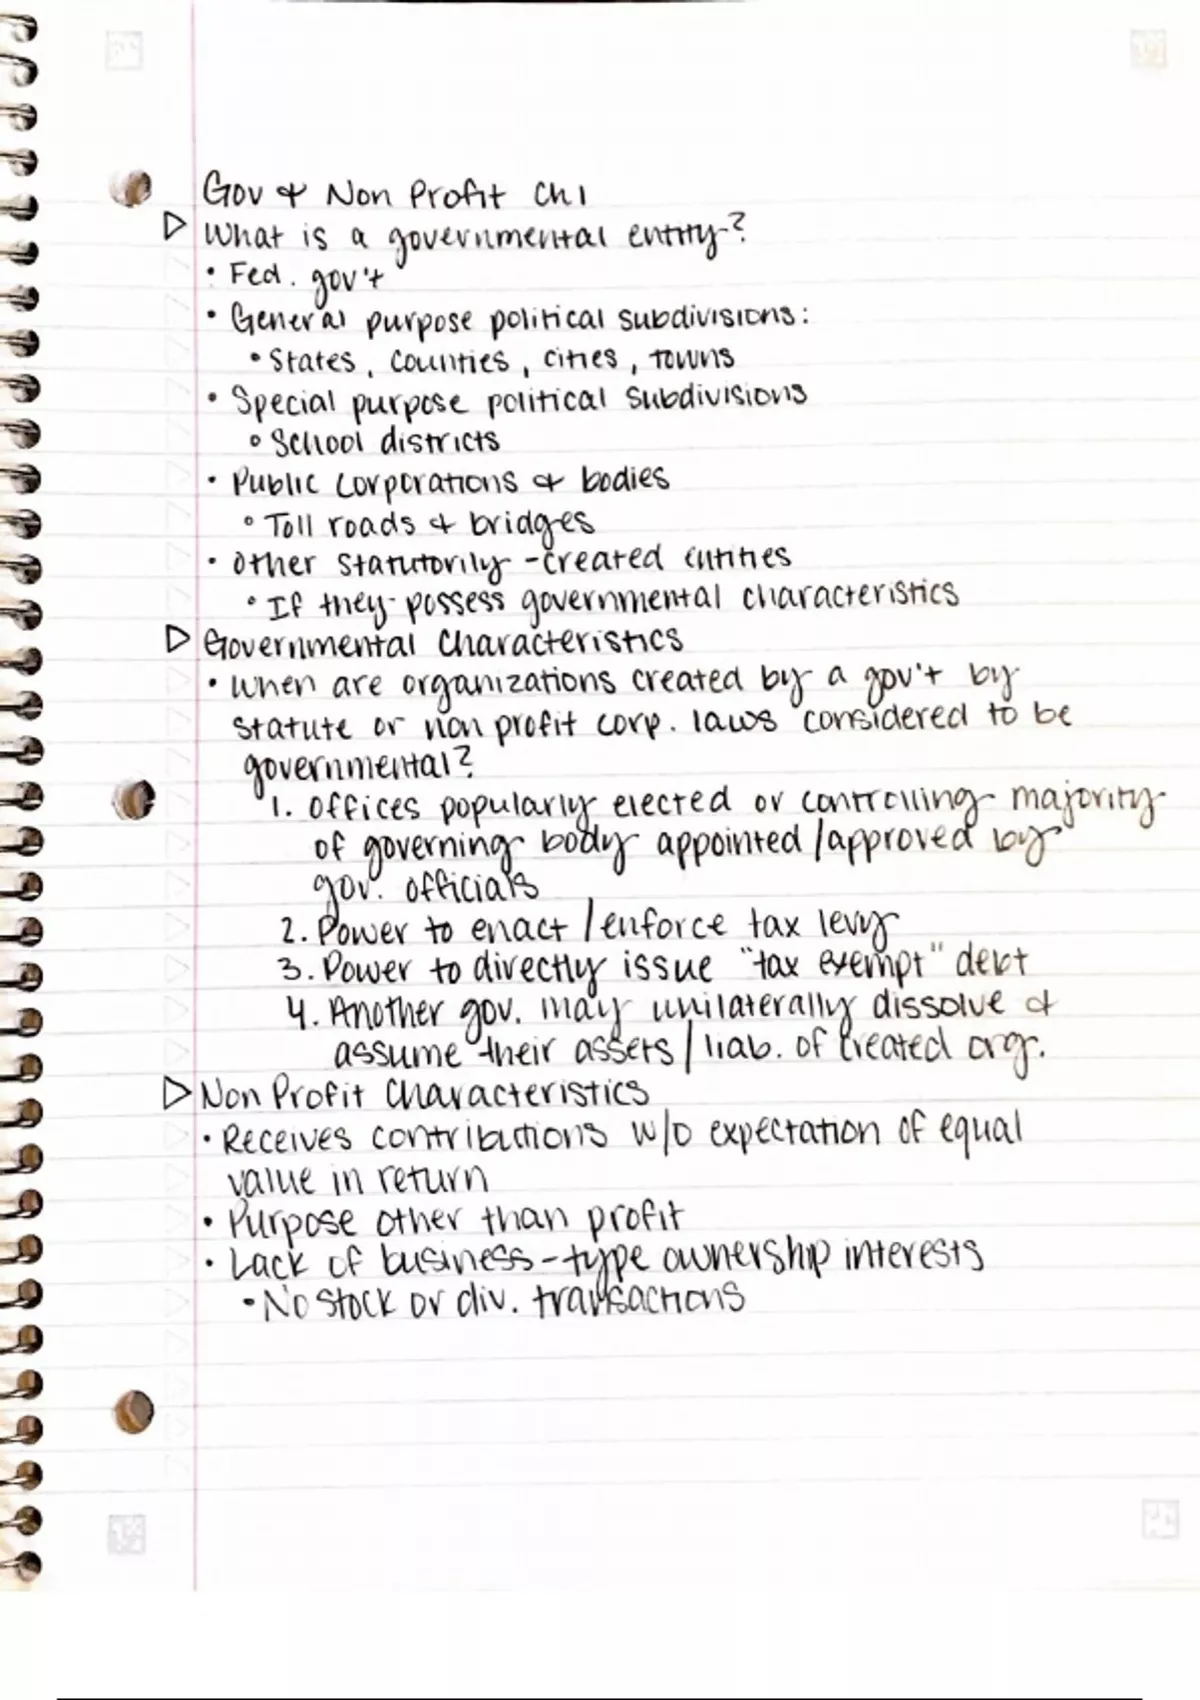 Gov & Non Profit Ch 1
▷ What is a governmental entity?
• Fed. gov't
• General purpose political subdivisions:
• States, counties, cities, towns
• Special purpose political subdivisions
• School districts
• Public corporations & bodies
• Toll roads & bridges
• Other statutorily-created entities
• If they possess governmental characteristics
▷ Governmental Characteristics
• When are organizations created by a gov't by
statute or non profit corp. laws considered to be
governmental?
1. Offices popularly elected or controlling majority
of governing body appointed/approved by
gov. officials
2. Power to enact/enforce tax levy
3. Power to directly issue "tax exempt" debt
4. Another gov. may unilaterally dissolve &
assume their assets/liab. of created org.
▷ Non Profit Characteristics
• Receives contributions w/o expectation of equal
value in return
• Purpose other than profit
• Lack of business-type ownership interests
• No stock or div. transactions